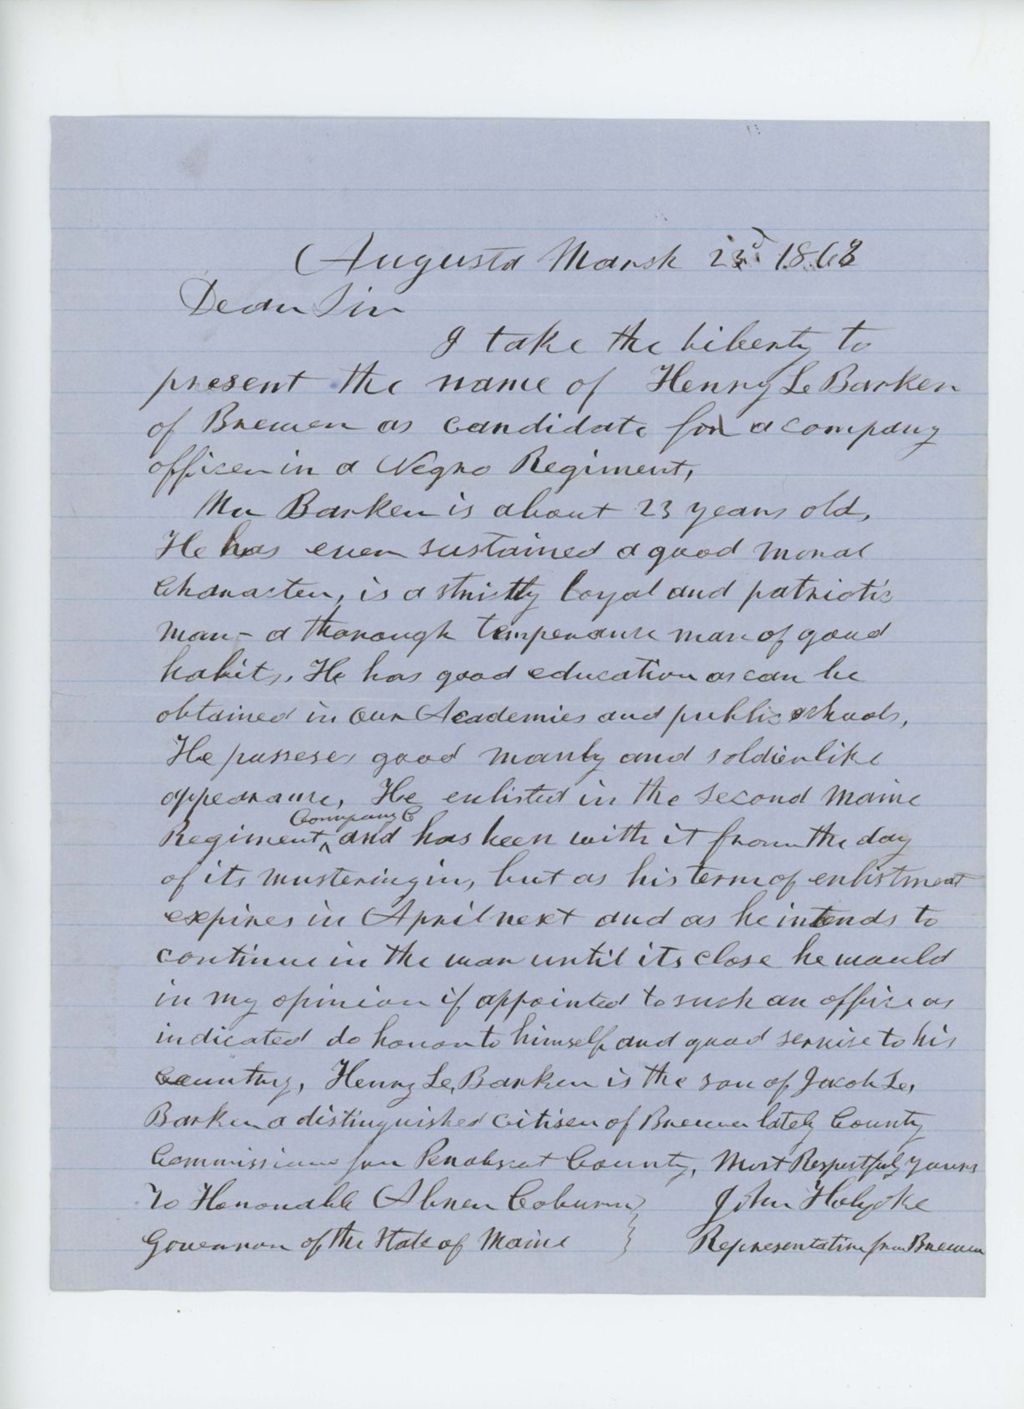 Augusta March 23d 1863
Dear Sir
I take the liberty to
present the name of Henry L. Barker
of Brewer as candidate for a company
officer in a Negro Regiment,
Mr Barker is about 23 years old,
He has ever sustained a good moral
character, is a strictly loyal and patriotic
man - a thorough temperance man of good
habits. He has good education as can be
obtained in our Academies and public schools,
He posseses good manly and soldierlike
appearance, He enlisted in the second Maine
Company C
Regiment ^ and has been with it from the day
of its mustering in, but as his term of enlistment
expires in April next and as he intends to
continue in the war until its close he would
in my opinion if appointed to such an office as
indicated do honor to himself and good service to his
country, Henry L. Barker is the son of Jacob L.
Barker a distinguished citisen of Brewer lately County
Commissioner for Penobscot County, Most Respectfuly yours
To Honorable Abner Coburn } John Holyoke
Governor of the State of Maine } Representative from Brewer